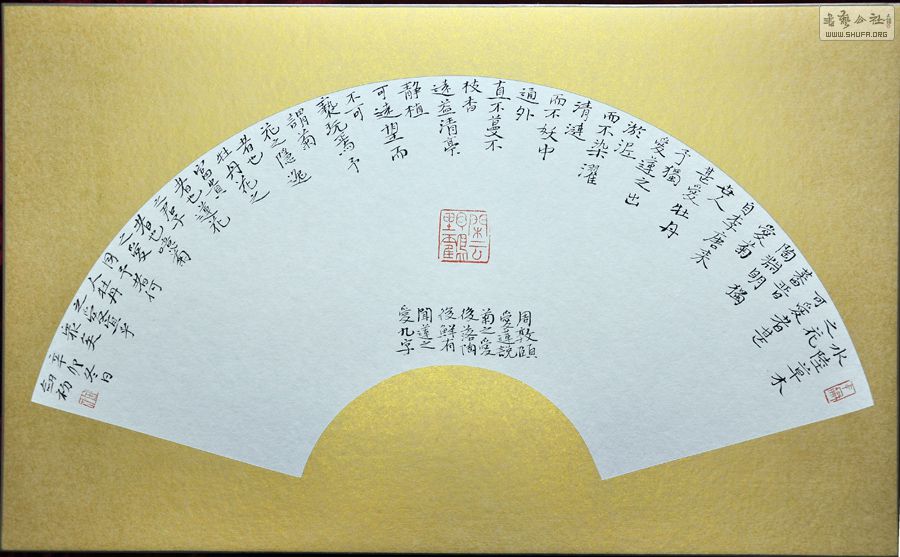 水陸草木
之花
可愛者甚
蕃晋
陶淵明獨
愛菊
自李唐来
世人
甚愛牡丹
予獨
愛蓮之出
淤泥
而不染濯
清漣
而不妖中
通外
直不蔓不
枝香
遠益清亭
静植
可遠望而
不可
褻玩焉予
謂菊
花之隱逸
者也
牡丹花之
者也
富貴蓮花
之君子
者也噫菊
之愛予者何
同人
牡丹之愛宜乎
衆矣
辛卯冬日
周敦頤
愛蓮說
菊之愛
後落陶
後鮮有
聞蓮之
愛九字
閑云
野鶴
WWW.SHUFA.ORG